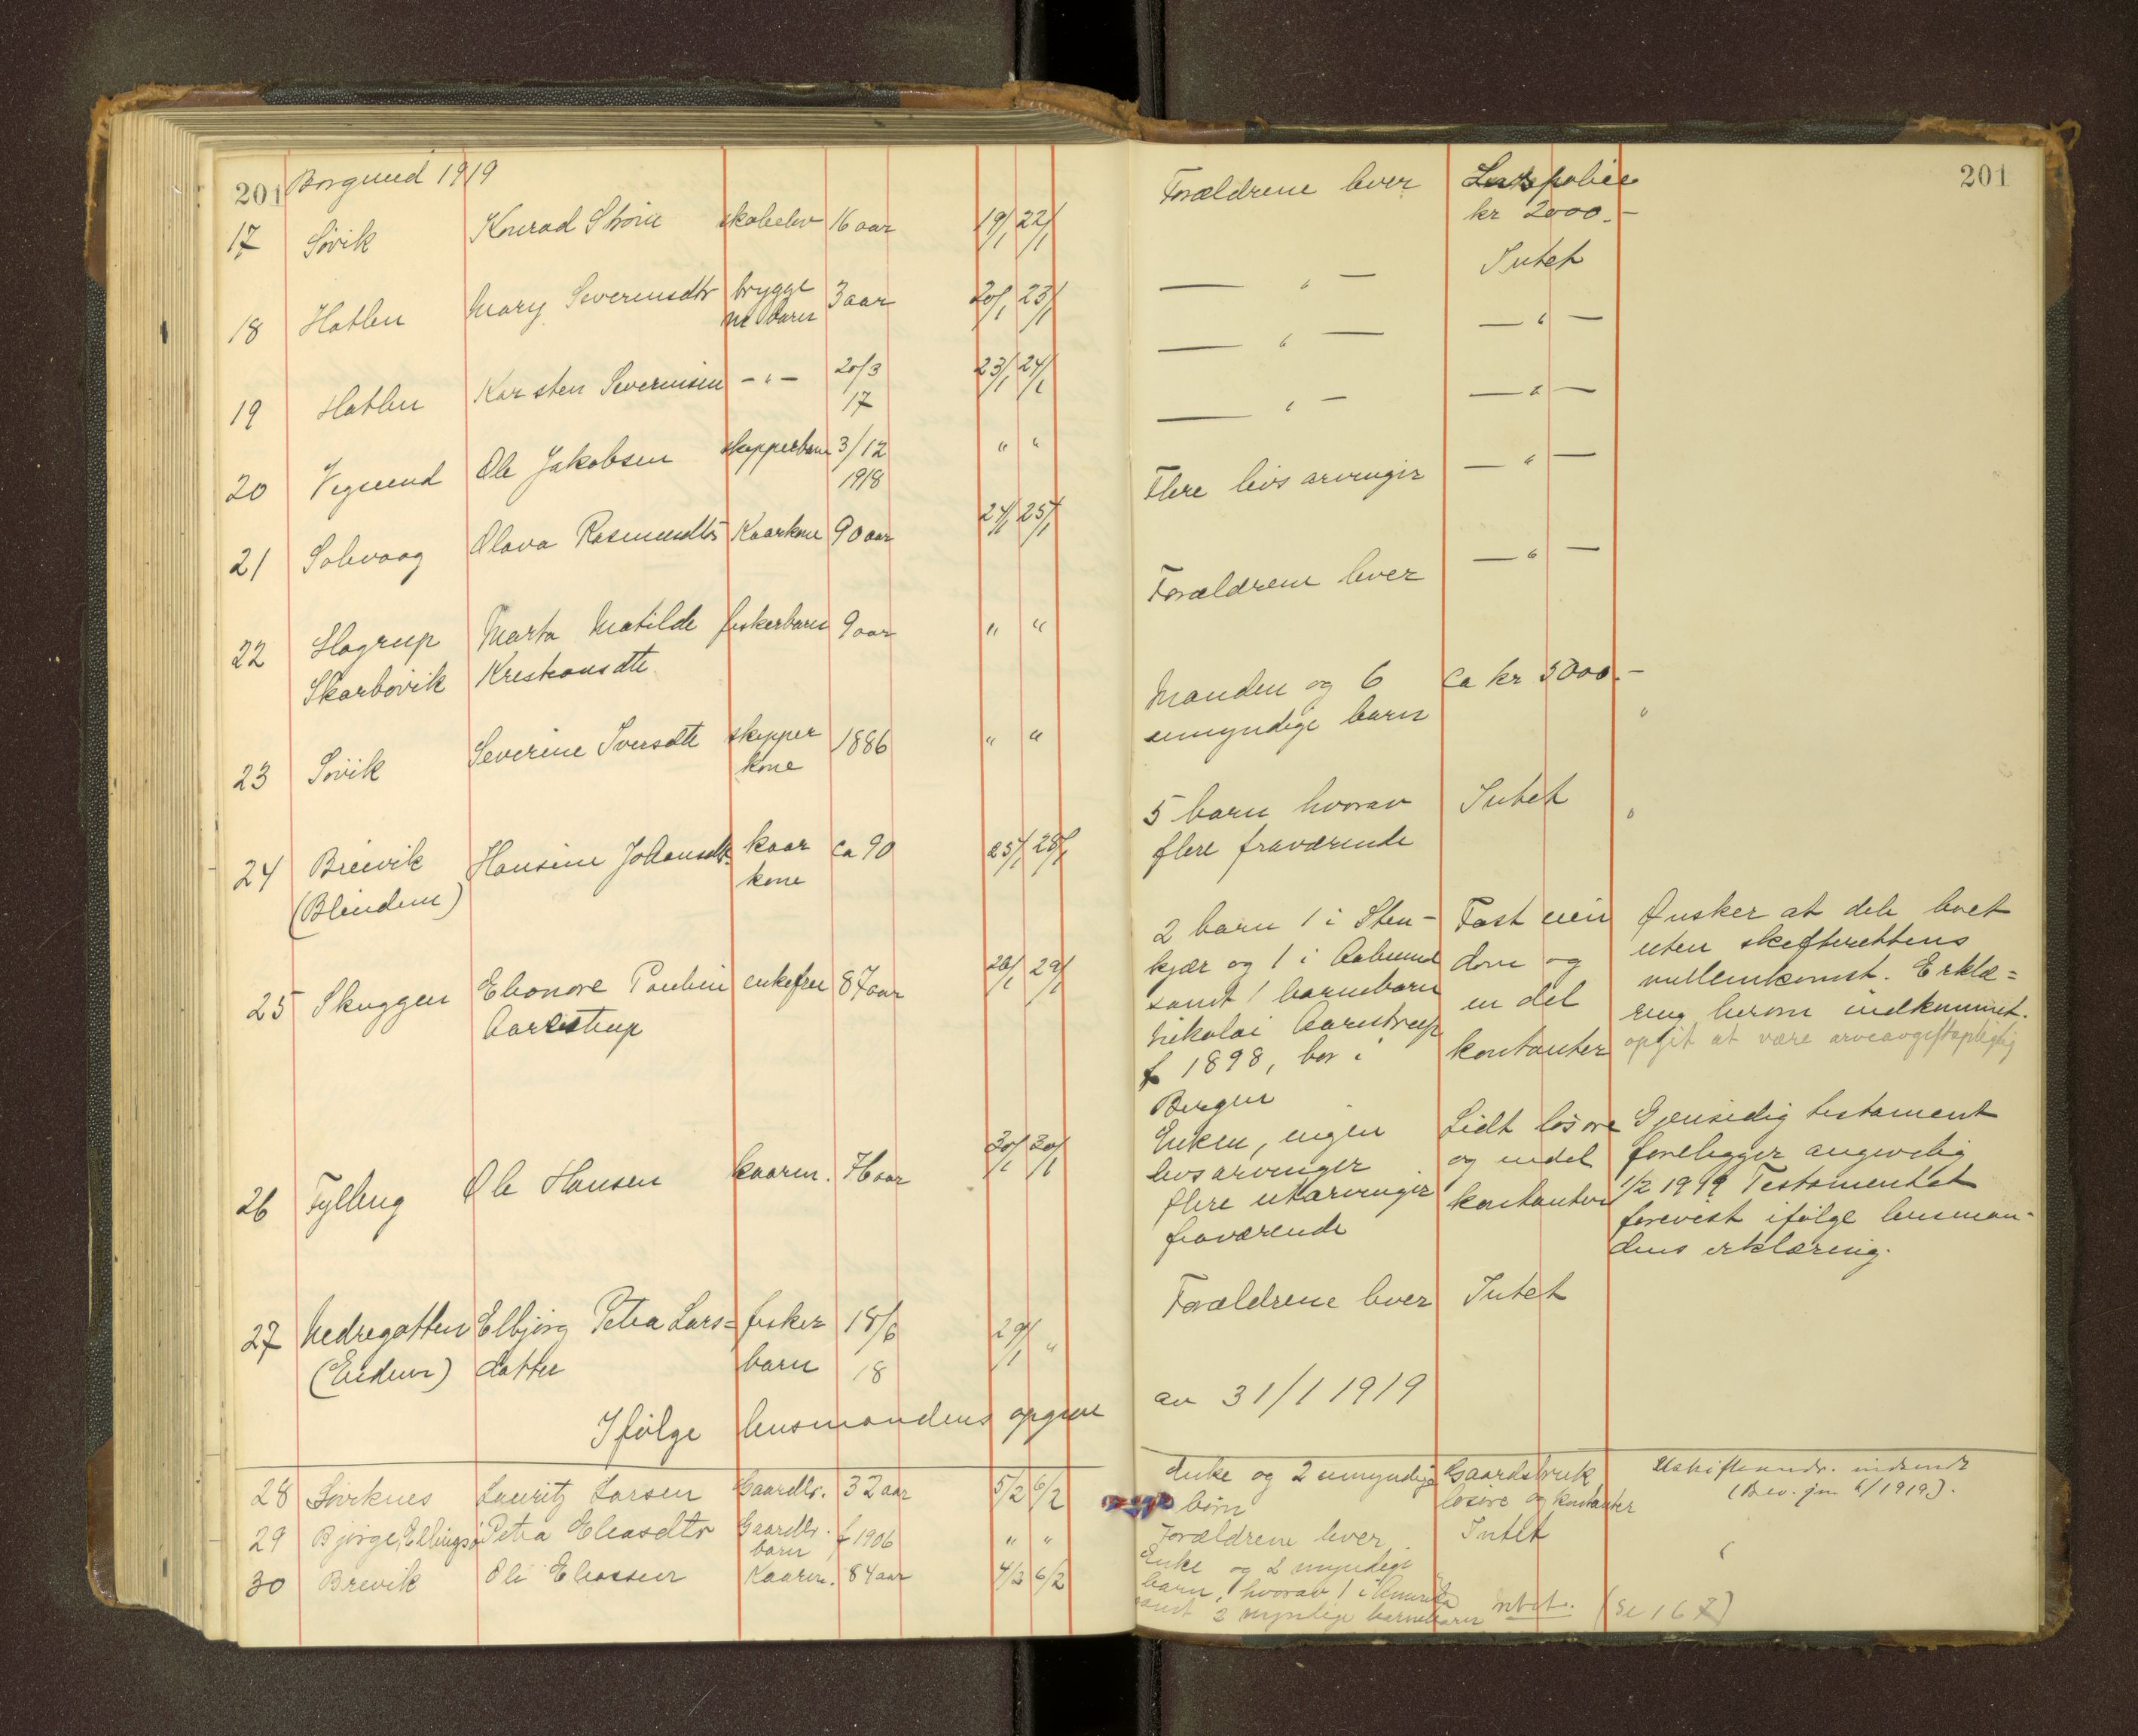 201 Borgund 1919
17 Søvik Konrad Strøm skobelev 16 aar 19/1 22/1
18 Hatlen Mary Severinsdtr brygge 3 aar 20/1 23/1
barn
19 Hatlen Karsten Severinsen - " - 20/3 23/1 24/1
17
20 Vegsund Ole Jakobsen skipperbarn 3/12 " "
1918
21 Solevaag Olava Rasmusdtr Kaarkone 90 aar 24/1 25/1
22 Slogrup Marta Matilde fiskerbarn 9 aar " "
Skarbøvik Kristiansdtr.
23 Søvik Severine Iversdtr skipper 1886 " "
kone
24 Breivik Hansine Johansdtr kaar ca 90 25/1 28/1
(Blindem) kone
25 Skuggen Elionore Pauline enkefru 87 aar 28/1 29/1
Aarestrup
26 Tylling Ole Hansen kaarm. 76 aar 30/1 30/1
27 Nedregotten Elbjørg Petra Lars= fisker 18/6 29/1 "
(Eidem) datter barn 18
Ifølge lensmandens opgave
28 Sørknes Lauritz Larsen Gaardbr. 32 aar 5/2 6/2
29 Bjørge, Ellingsø Petra Eliasdtr Gaardbr. f 1906 " "
barn
30 Brevik Ole Eliassen Kaarm. 84 aar 4/2 6/2
201
Forældrene lever Livspolice
kr 2000.-
— " — Intet
— " — — " —
— " — — " —
Flere livsarvinger — " —
Forældrene lever — " —
Manden og 6 ca kr 5000.-
umyndige barn "
5 barn hvorav Intet "
flere fraværende
2 barn 1 i Sten- Fast eien Ønsker at dele boet
kjær og 1 i Aalesund dom og uten skifterettens
samt 1 barnebarn en del mellemkomst. Erklæ=
Nikolai Aarestrup kontanter ring herom indkommet.
f 1898, bor i opgit at være arveavgiftspligtig
Bergen
Enken, ingen Lidt løsøre Gjensidig testament
livsarvinger. og endel foreligger angivelig
flere utarvinger kontanter 1/2 1919 Testamentet
fraværende forevist ifølge lensman-
dens erklæring.
Forældrene lever Intet
av 31/1 1919
Enke og 2 umyndige Gaardsbruk indsendt
børn løsøre og kontanter (Bev. jnr. 6/1919).
Forældrene lever. Intet "
Enke og 2 myndige
barn, hvorav 1 i Amerika
samt 2 myndige barnebarn Intet. (Se 167)